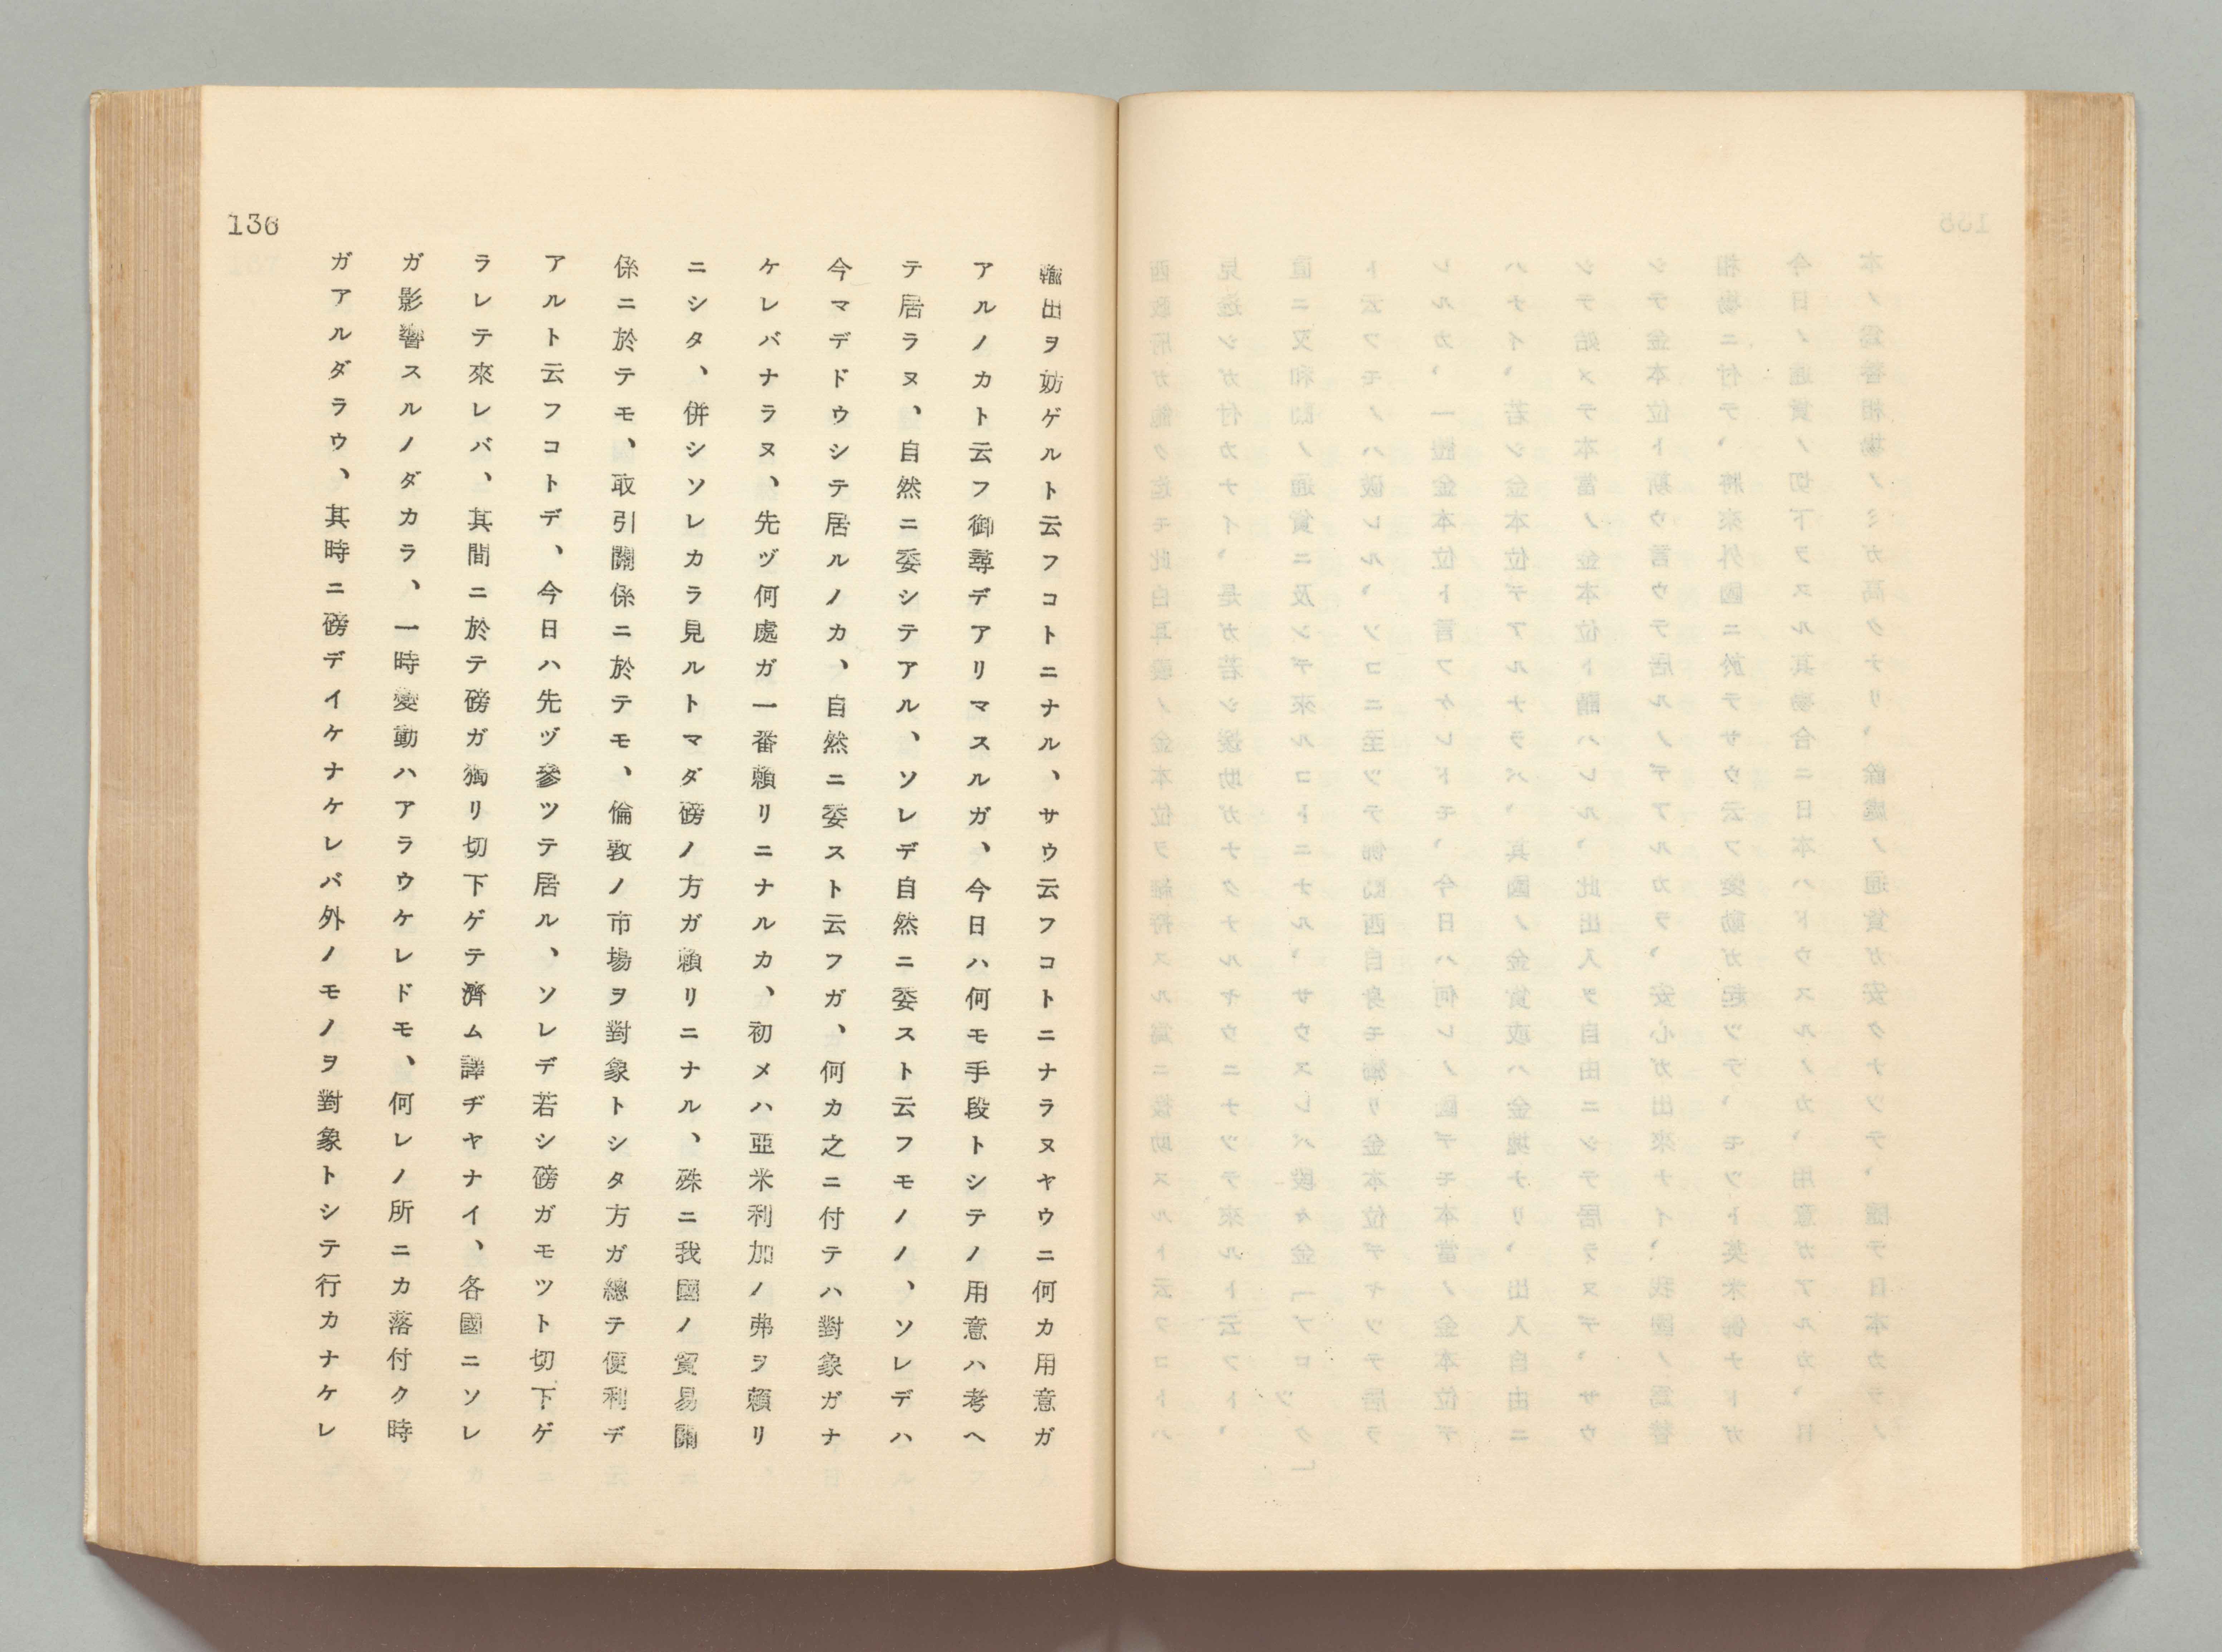 136
輸出ヲ妨ゲルト云フコトニナル、サウ云フコトニナラヌヤウニ何カ用意ガ
アルノカト云フ御尋デアリマスルガ、今日ハ何モ手段トシテノ用意ハ考ヘ
テ居ラヌ、自然ニ委シテアル、ソレデ自然ニ委スト云フモノノ、ソレデハ
今マデドウシテ居ルノカ、自然ニ委スト云フガ、何カ之ニ付テハ對象ガナ
ケレバナラヌ、先ヅ何處ガ一番賴リニナルカ、初メハ亞米利加ノ弗ヲ賴リ
ニシタ、併シソレカラ見ルトマダ磅ノ方ガ賴リニナル、殊ニ我國ノ貿易關
係ニ於テモ、取引關係ニ於テモ、倫敦ノ市場ヲ對象トシタ方ガ總テ便利デ
アルト云フコトデ、今日ハ先ヅ參ツテ居ル、ソレデ若シ磅ガモツト切下ゲ
ラレテ來レバ、其間ニ於テ磅ガ獨リ切下ゲテ濟ム譯ヂヤナイ、各國ニソレ
ガ影響スルノダカラ、一時變動ハアラウケレドモ、何レノ所ニカ落付ク時
ガアルダラウ、其時ニ磅デイケナケレバ外ノモノヲ對象トシテ行カナケレ